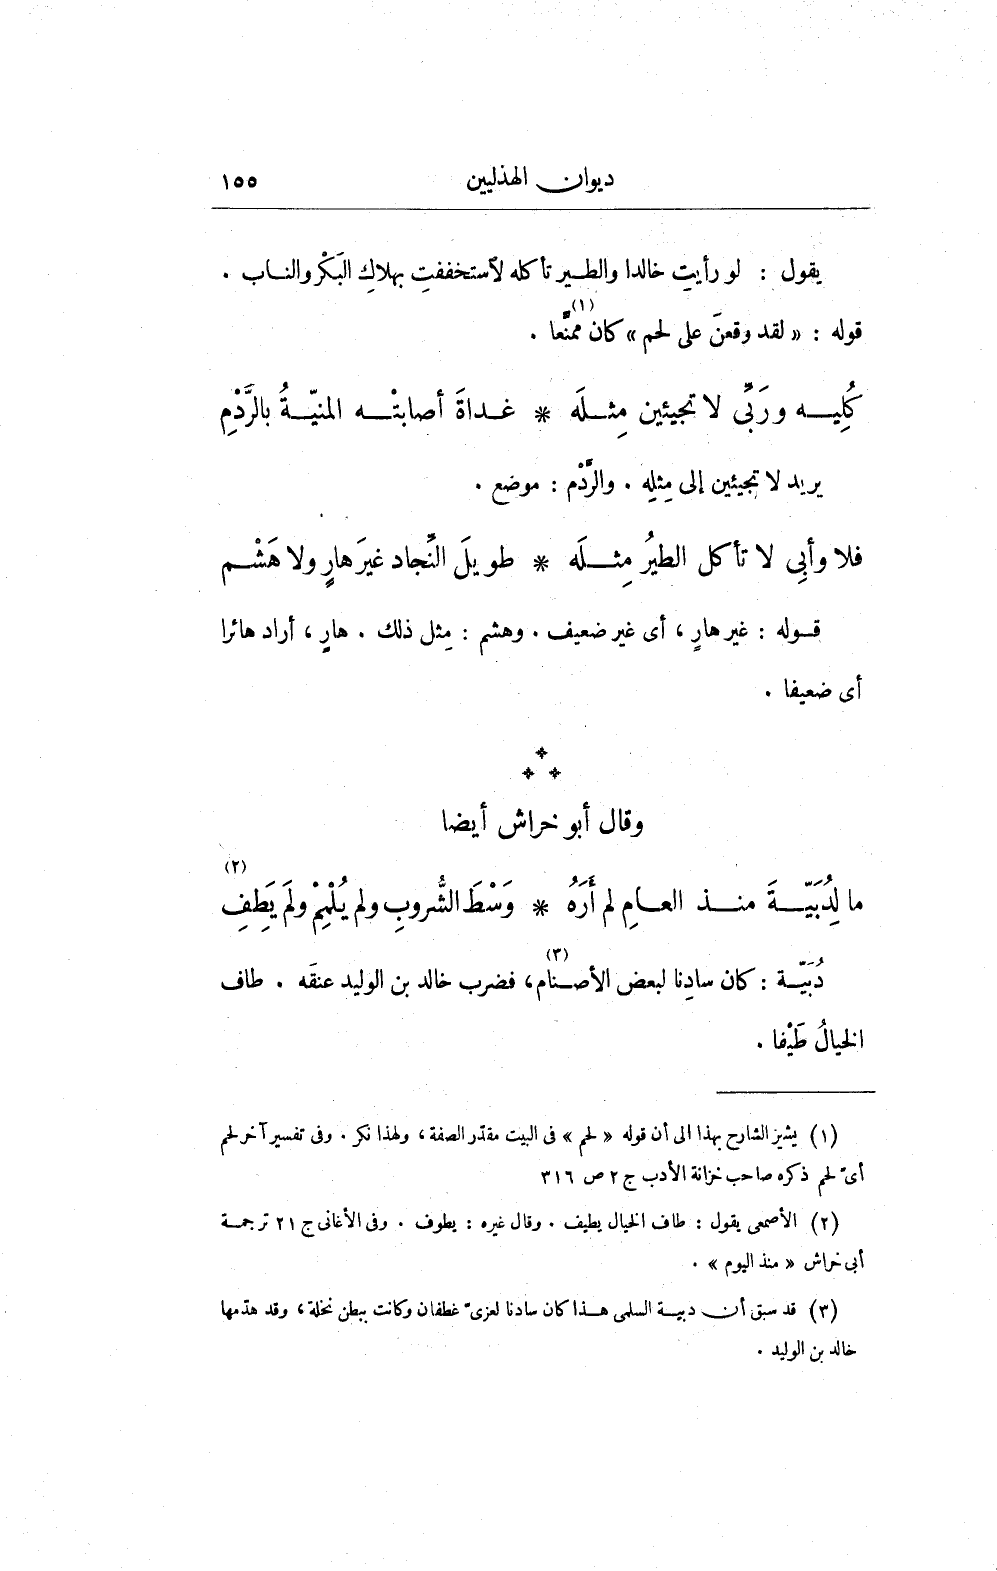 ديوان الهذليين ١٥٥
يقول : لو رأيتِ خالدا والطير تأكله لآستخففتِ بهلاكِ البَكْر والناب .
قوله : « لقد وقعنَ على لحم » كان ممنَّعا (١) .
كُلِيه ورَبِّى لا تجيئين مِثلَه * غداةَ أصابتْه المنيّةُ بالرَّدْمِ
يريد لا تجيئين إلى مِثلِه . والرَّدْم : موضع .
فلا وأبِى لا تأكل الطيرُ مِثلَه * طويلَ النِّجاد غيرَ هارٍ ولا هَشْم
قوله : غير هارٍ ، أى غير ضعيف . وهشم : مِثل ذلك . هارٍ ، أراد هائرا
أى ضعيفا .
وقال أبو خراش أيضا
ما لِدُبَيّةَ منذ العامِ لم أَرَهُ * وَسْطَ الشُّروبِ ولم يُلْمِمْ ولم يَطِفِ (٢)
دُبَيّة : كان سادِنا لبعض الأصنام (٣) ، فضرب خالد بن الوليد عنقَه . طاف
الخيالُ طَيْفا .
(١) يشير الشارح بهذا الى أن قوله « لحم » فى البيت مقدّر الصفة ، ولهذا نكر . وفى تفسير آخر لحم
أىّ لحم ذكره صاحب خزانة الأدب ج ٢ ص ٣١٦
(٢) الأصمعى يقول : طاف الخيال يطيف . وقال غيره : يطوف . وفى الأغانى ج ٢١ ترجمة
أبى خراش « منذ اليوم » .
(٣) قد سبق أن دبية السلمى هذا كان سادنا لعزىّ غطفان وكانت ببطن نخلة ، وقد هدّمها
خالد بن الوليد .